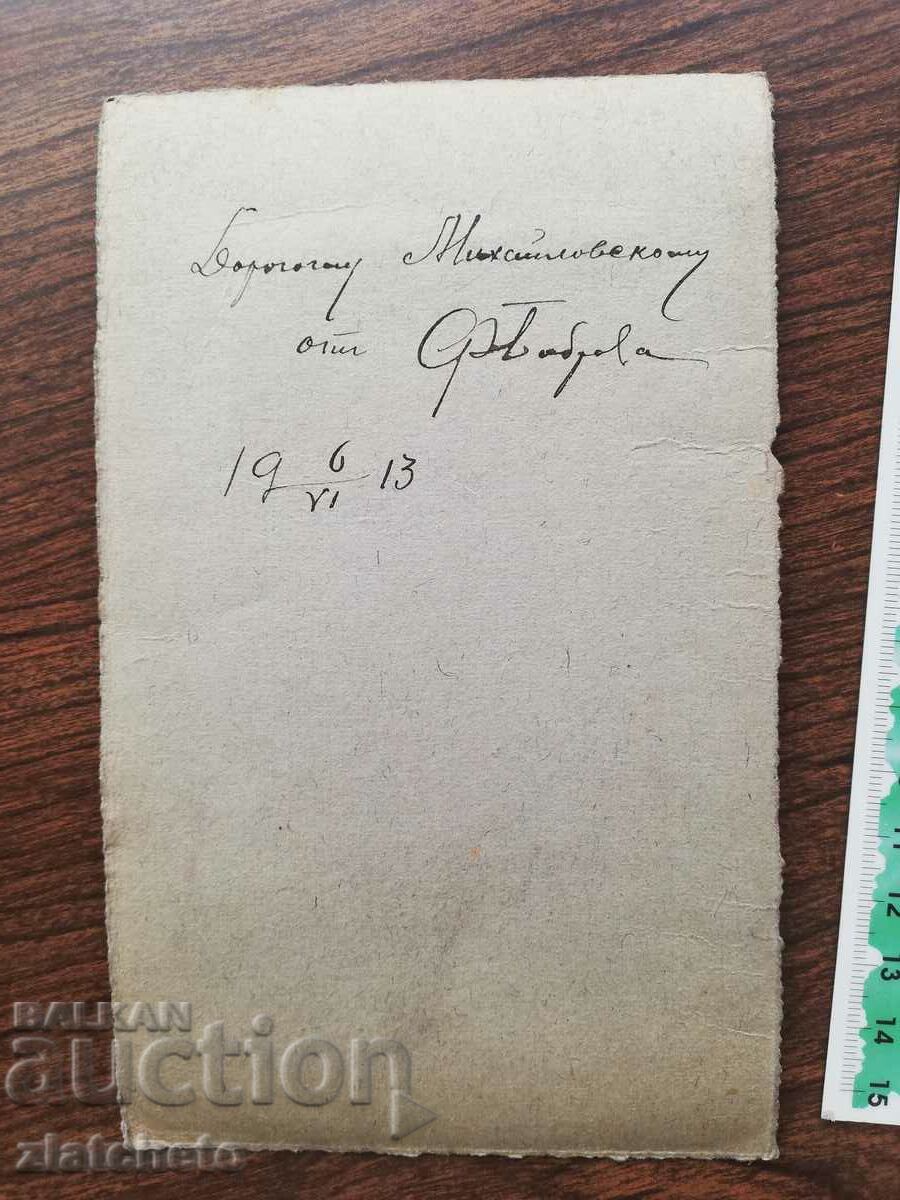 Дорогому Михайловскому
от
19 6/VI 13
11
12
13
14
15
BALKAN
auction
zlatcheto